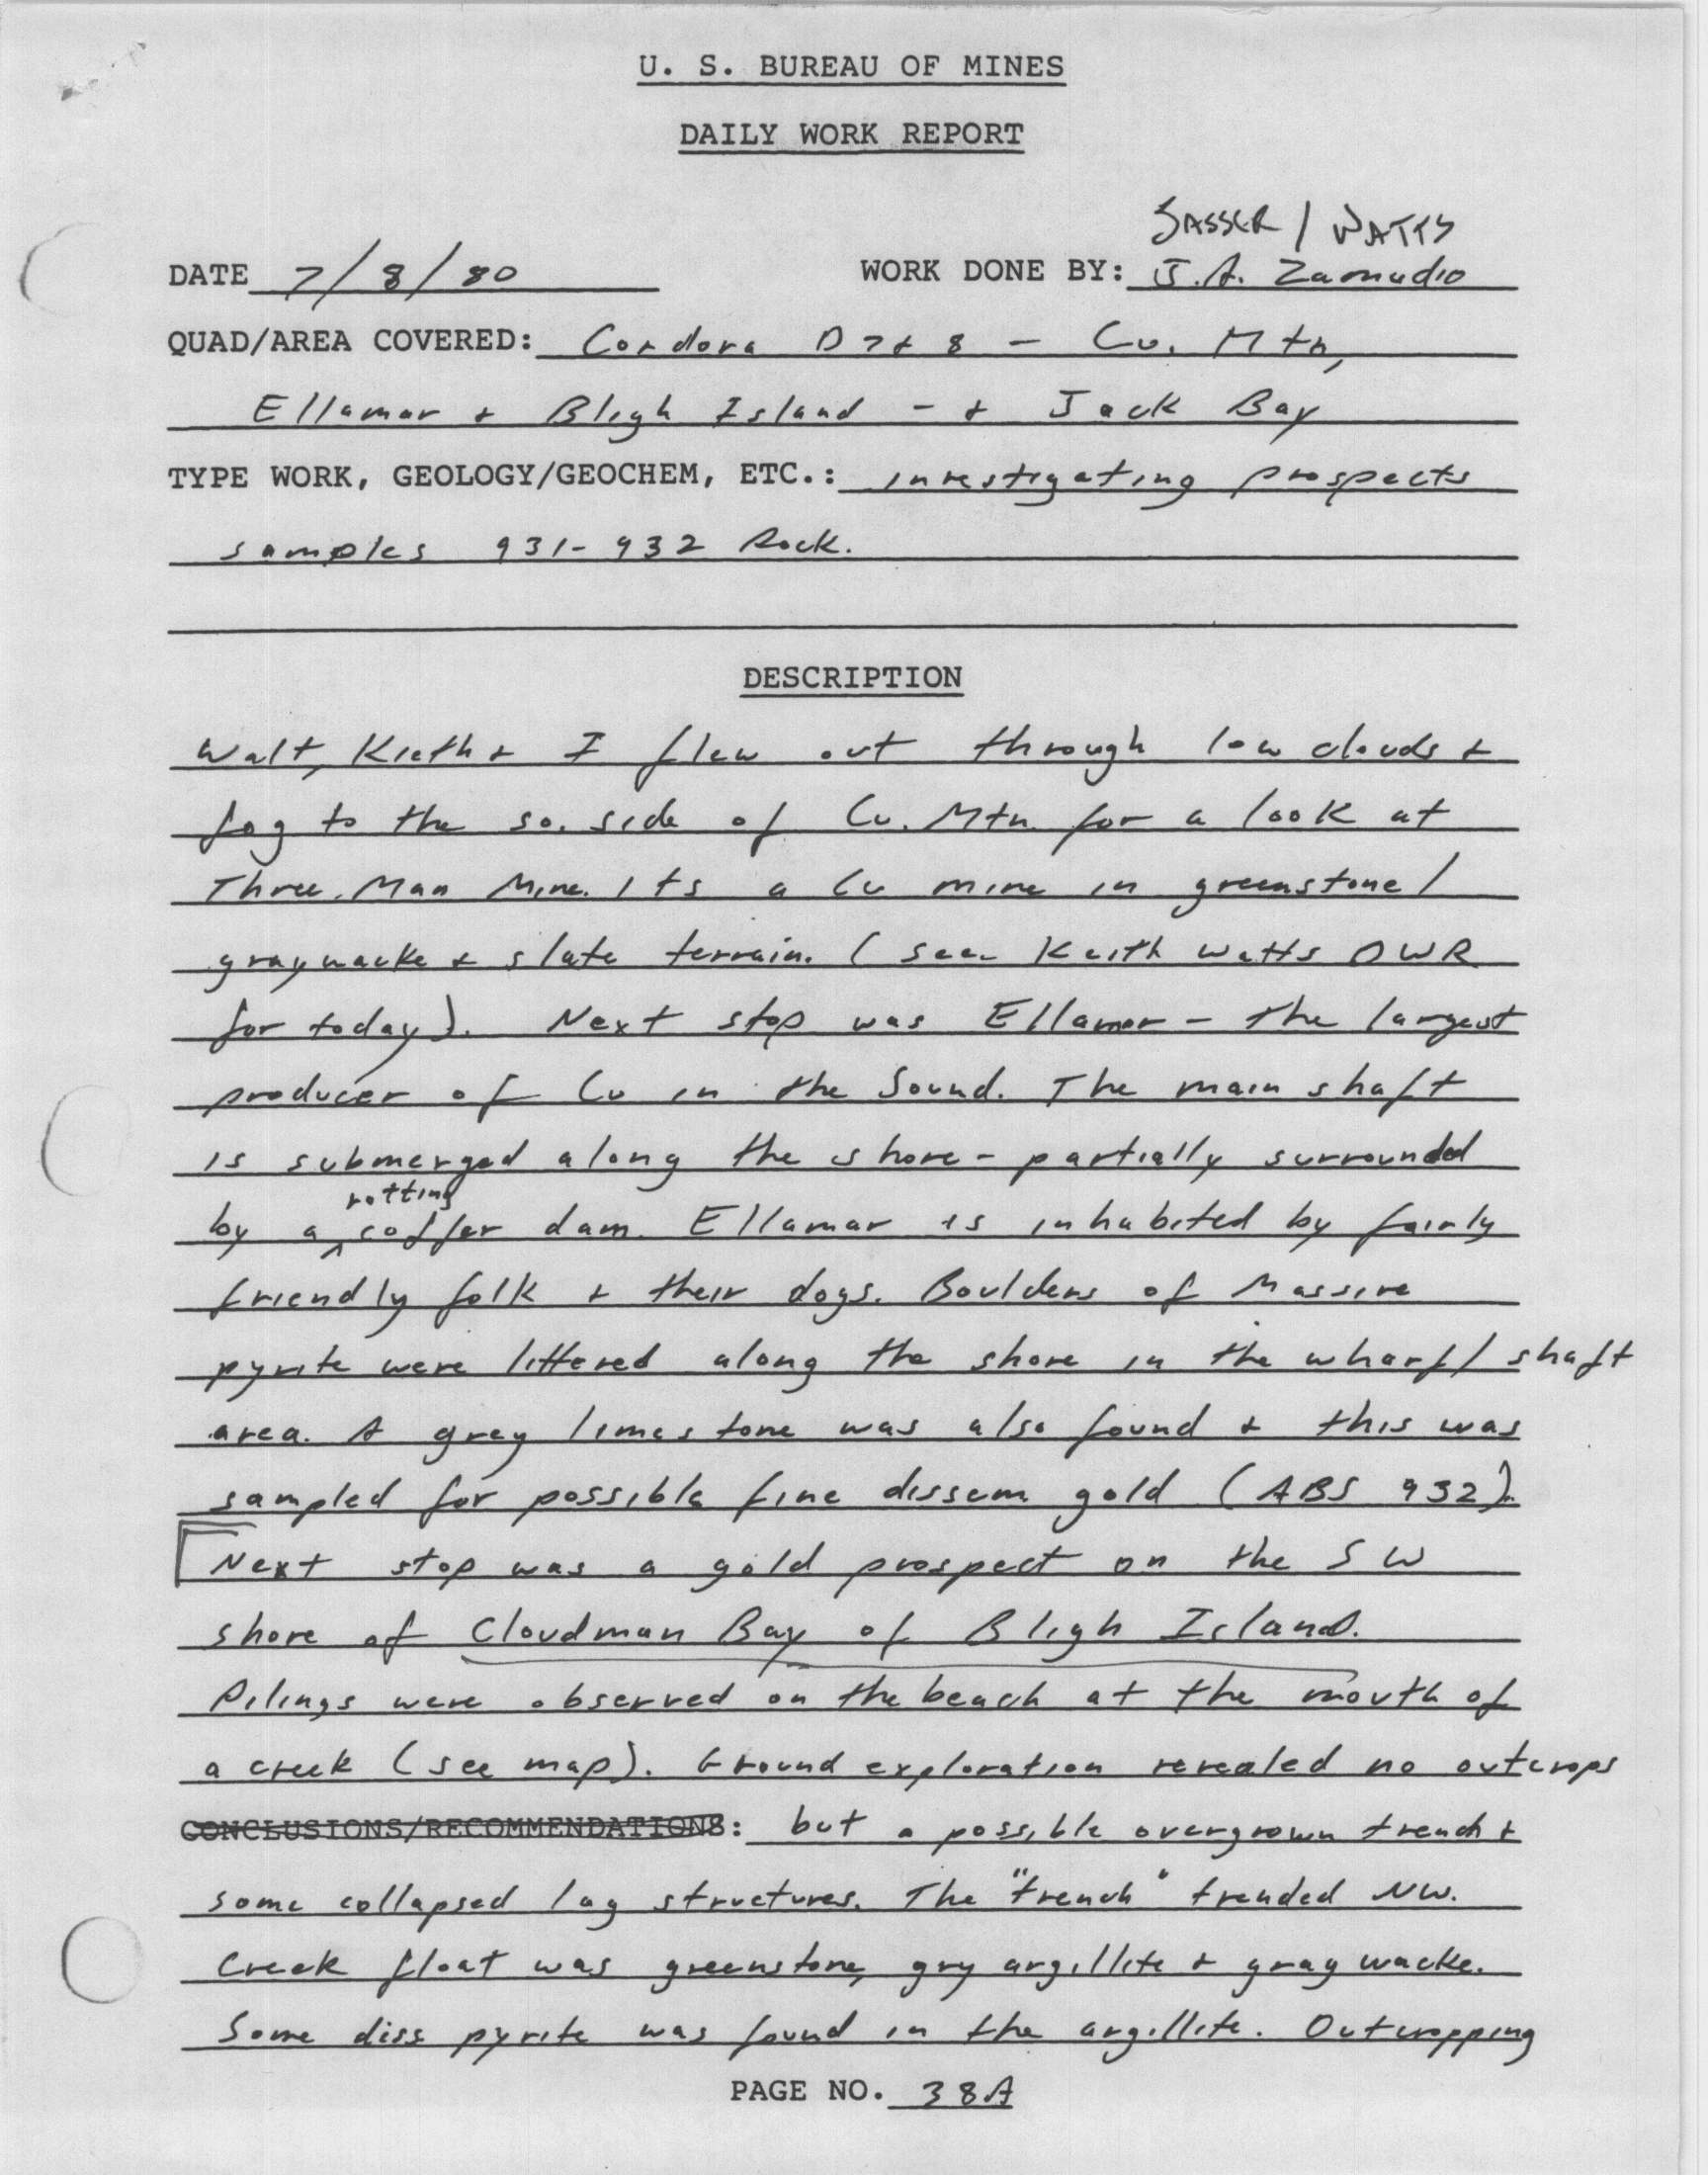 U. S. BUREAU OF MINES
DAILY WORK REPORT
SASSER / WATTS
DATE 7/8/80 WORK DONE BY: J.A. Zamudio
QUAD/AREA COVERED: Cordova D7 & 8 - Cu. Mtn,
Ellamar & Bligh Island - & Jack Bay
TYPE WORK, GEOLOGY/GEOCHEM, ETC.: investigating prospects
samples 931-932 Rock.
DESCRIPTION
Walt, Kieth & I flew out through low clouds &
fog to the so. side of Cu. Mtn. for a look at
Three Man Mine. Its a Cu mine in greenstone/
graywacke & slate terrain. (see Keith Watts DWR
for today). Next stop was Ellamar - the largest
producer of Cu in the Sound. The main shaft
is submerged along the shore - partially surrounded
rotting
by a ^ coffer dam. Ellamar is inhabited by fairly
friendly folk & their dogs. Boulders of Massive
pyrite were littered along the shore in the wharf/shaft
area. A grey limestone was also found & this was
sampled for possible fine dissem gold (ABS 932).
Next stop was a gold prospect on the SW
shore of Cloudman Bay of Bligh Island.
Pilings were observed on the beach at the mouth of
a creek (see map). Ground exploration revealed no outcrops
CONCLUSIONS/RECOMMENDATIONS: but a possible overgrown trench &
some collapsed log structures. The "trench" trended NW.
Creek float was greenstone, gry argillite & graywacke.
Some diss pyrite was found in the argillite. Outcropping
PAGE NO. 38A